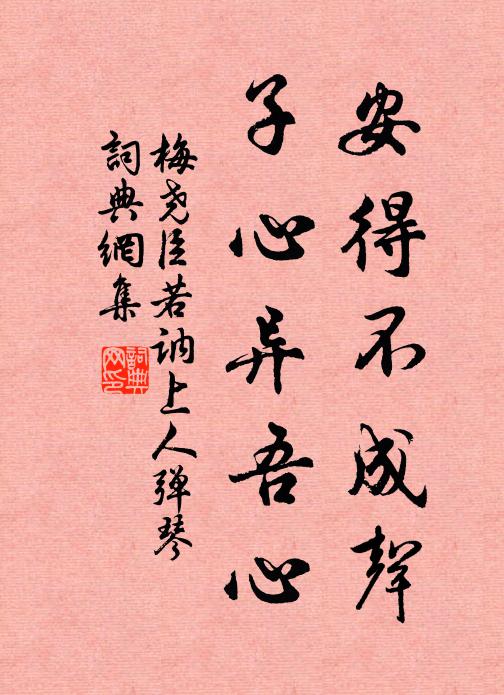 安得不成聲
子心异吾心
梅尧臣若讷上人弹琴
詞典網集
詞典网印